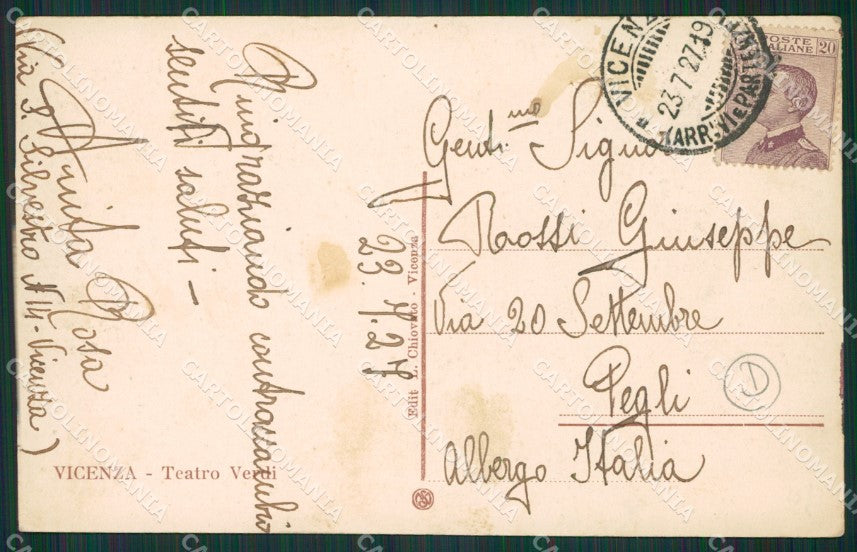 Ringraziando contraccambio
sentiti saluti -
Anita Rosa
(Via S. Silvestro N 14 - Vicenza)
V 23.7.27
VICENZA - Teatro Verdi
Edit L. Chiovato - Vicenza
VICENZA
23.7.27.19
(ARRIVI E PARTENZE)
POSTE ITALIANE 20
Gent.mo Signor
Rossi Giuseppe
Via 20 Settembre
Pegli
Albergo Italia
D
CARTOLINOMANIA